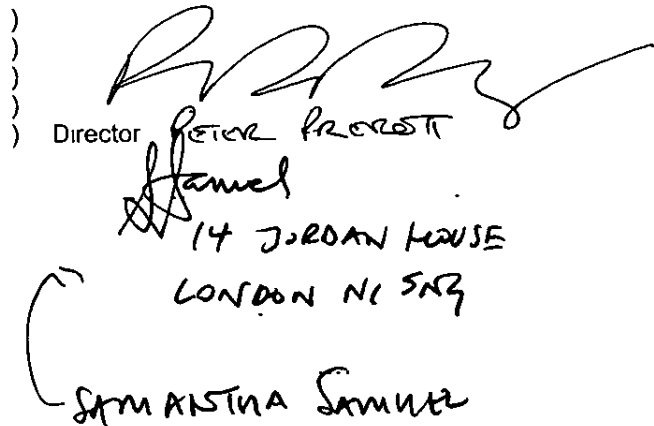 )
)
)
)
) Director PETER
14 JORDAN HOUSE
LONDON N1
SAMANTHA SAMUEL